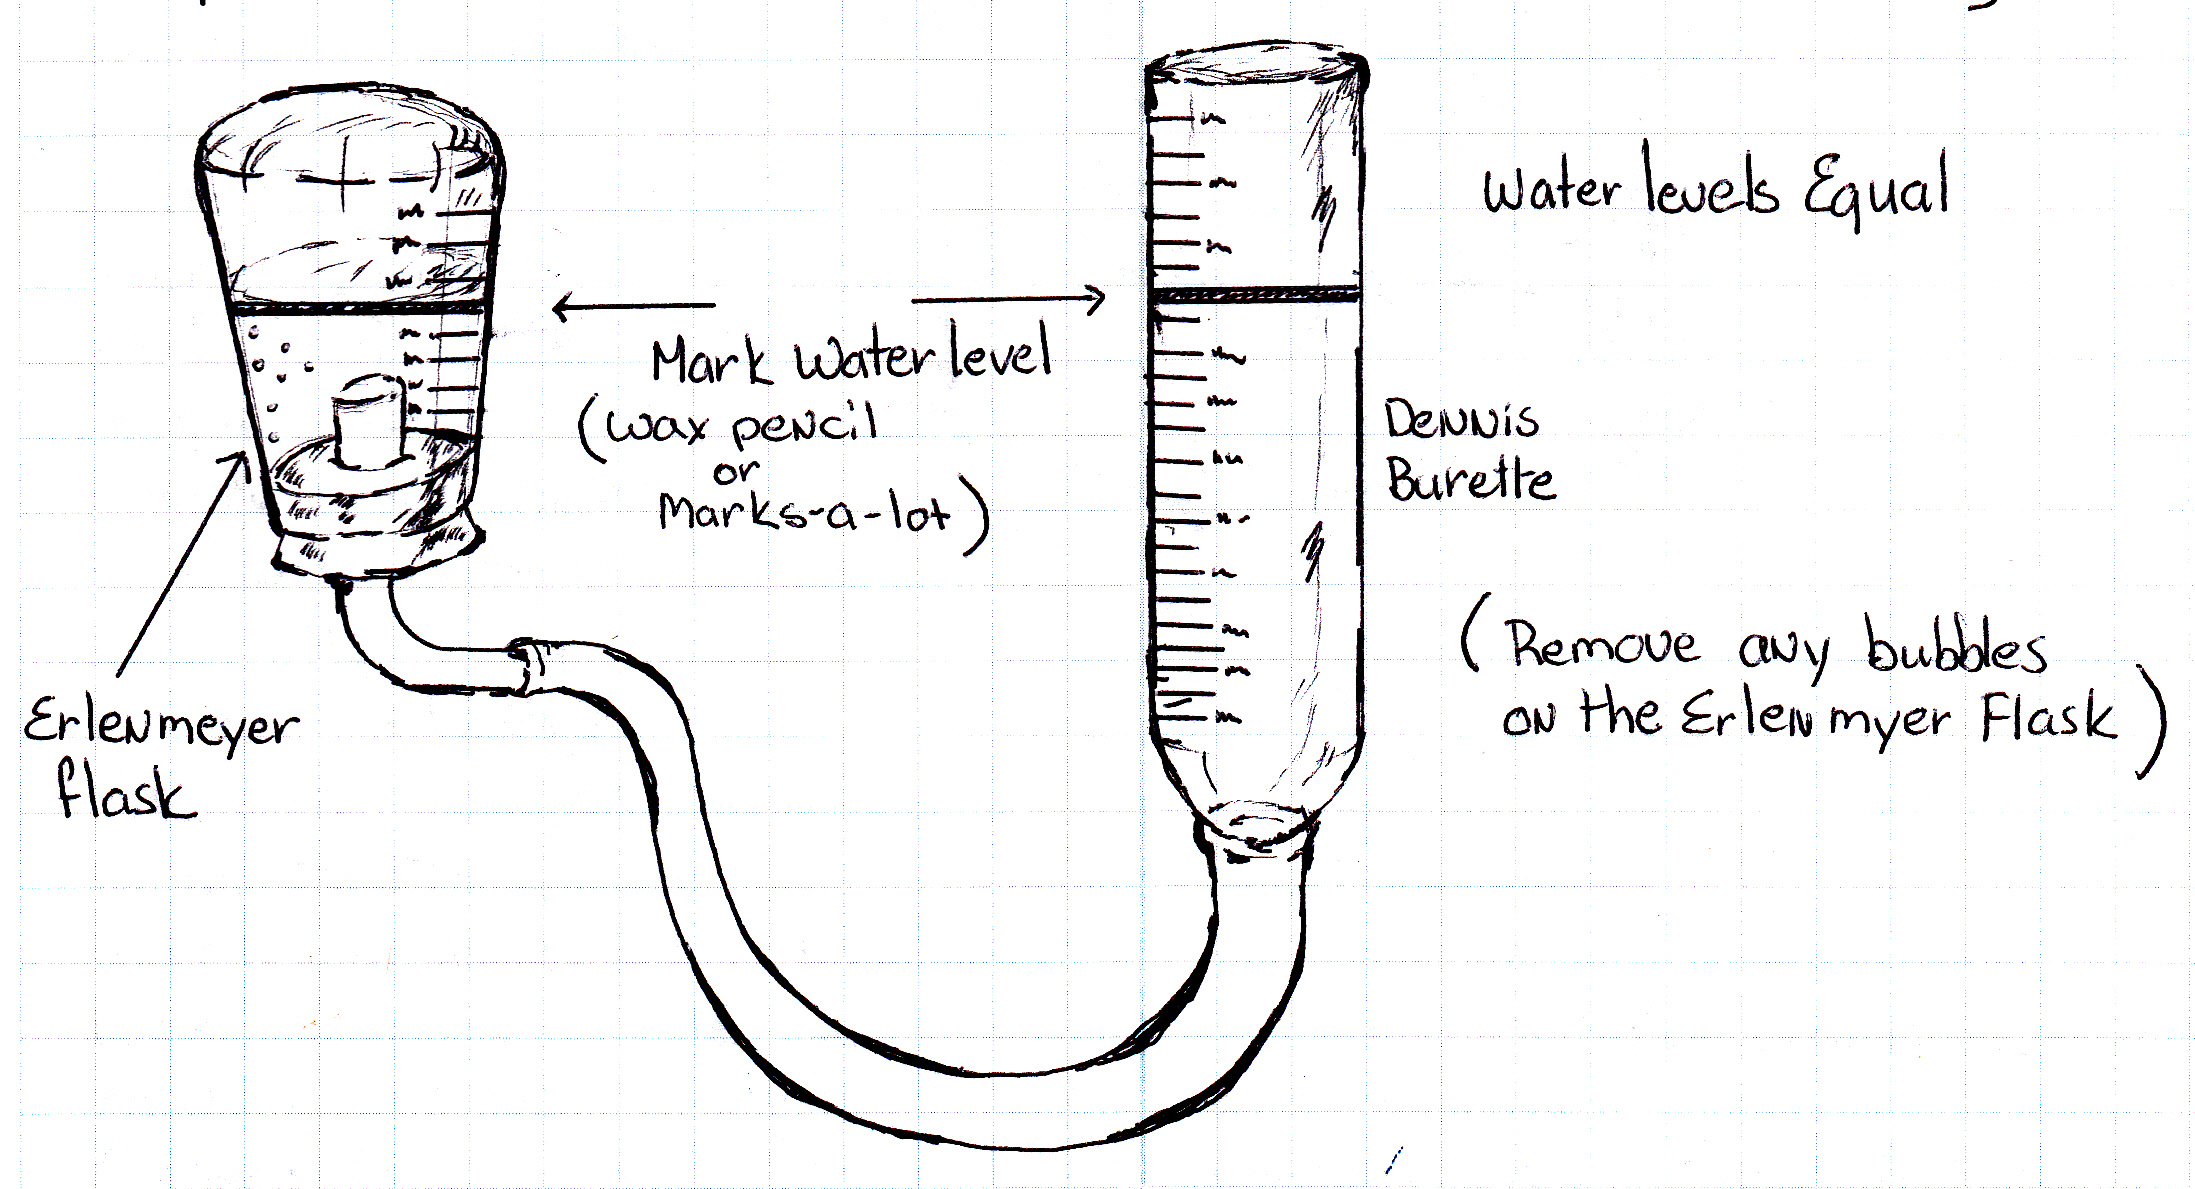 Water levels Equal
Mark Water level
(wax pencil
or
Marks-a-lot)
Dennis
Burette
(Remove any bubbles
on the Erlenmyer Flask)
Erlenmeyer
flask